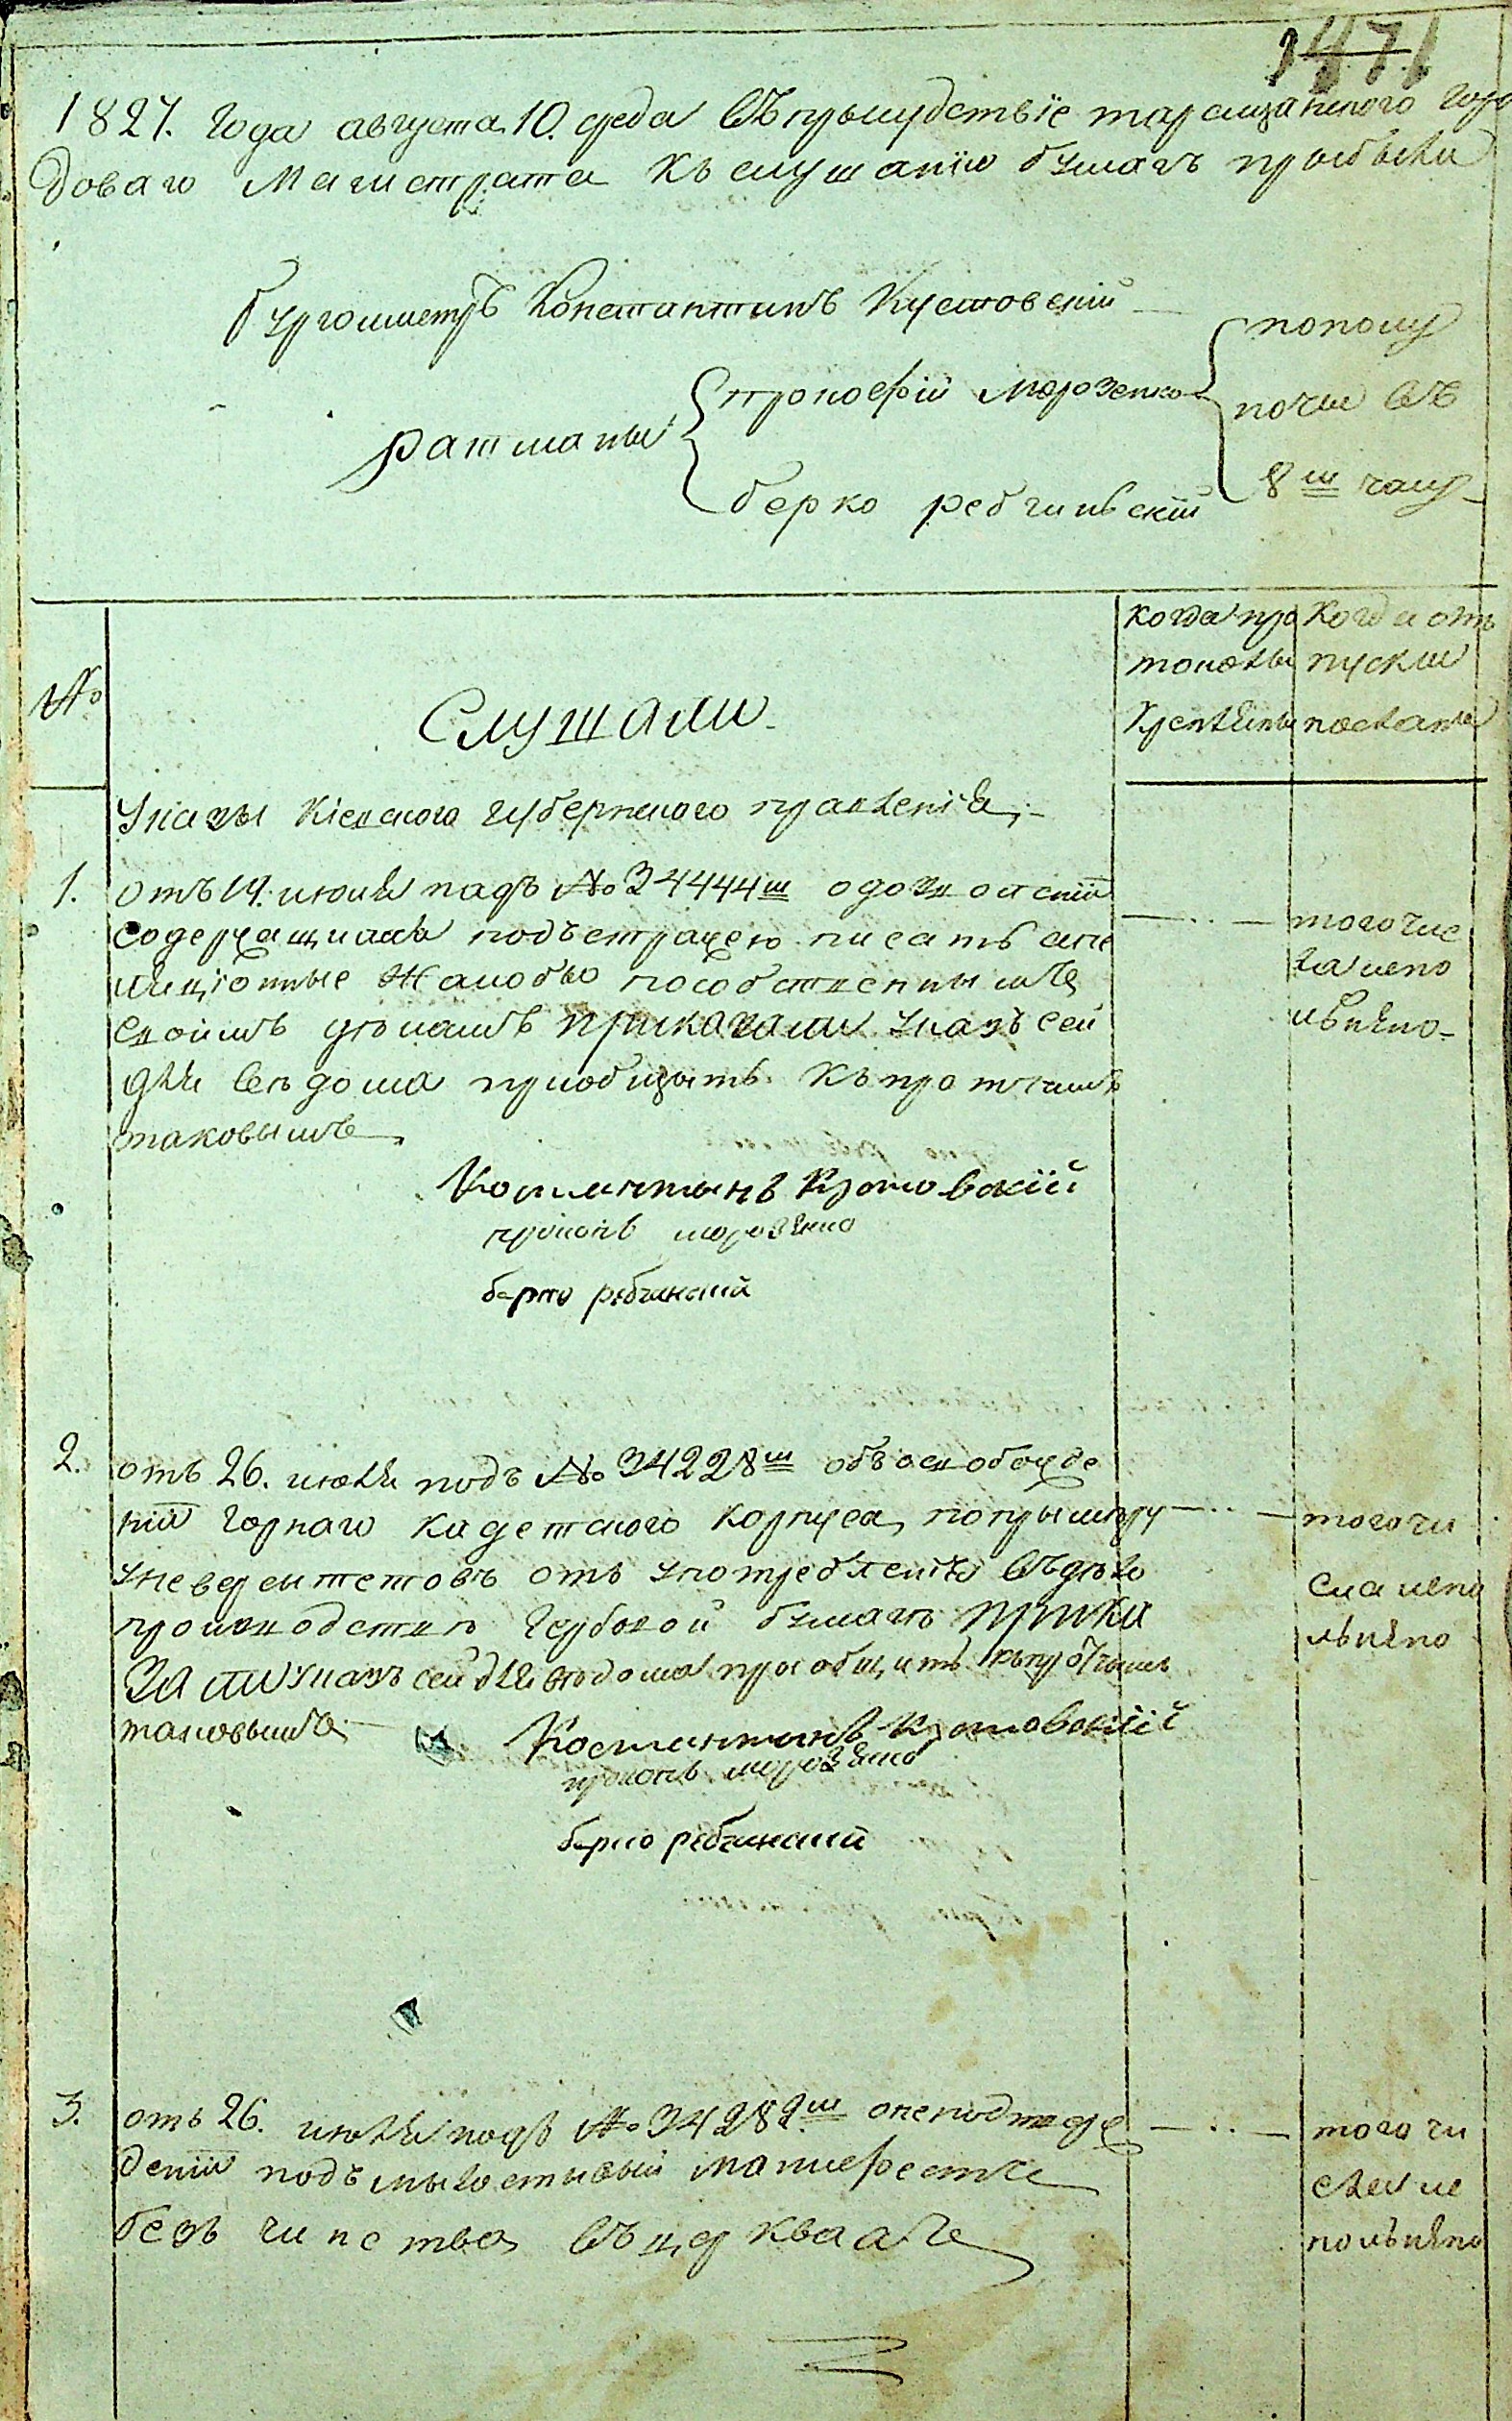 1471
1827. Года августа 10. среда Въ прысудствіе таращанского горо
доваго Магистрата къ слушанію бумагъ прыбыли
бургомистръ Константинъ Кустовскій
ратманы
прокофій Морозенко
берко ребчинскій
пополу
ночи въ
8 ш часу
№
Слушали
когда про
токолы
Когда отъ
пуски
посланы
Указы Кіевского губернского правленія,
1. отъ 14. июля надъ № 34444 ш о дозволеніи
содержащимся подъ стражею писать апе
ляціонные жалобы по собственнымъ
своимъ дѣламъ приказали указъ сей
для вѣдома приобщить къ протчимъ
таковымъ
того чис
ла испо
лнено
Константинъ Кустовскій
прокопъ морозенко
берко ребчинский
2. отъ 26. июля подъ № 34228 ш объ освобожде
ніи Горнаго кадетского корпуса, по прымѣру
универси тетовъ отъ употребленія въ дѣло
производствѣ гербовой бумаги прика
зали указъ сей для вѣдома приобщить къ протчимъ
таковымъ
того чи
сла испо
лнено
Константинъ Кустовскій
прокопъ морозенко
берко ребчинский
3. отъ 26. июля подъ № 34282 ш о неподтверж
деніи подъ мылостывый манифестъ
безъ чинства въ церквахъ
того чи
сла ис
полнено